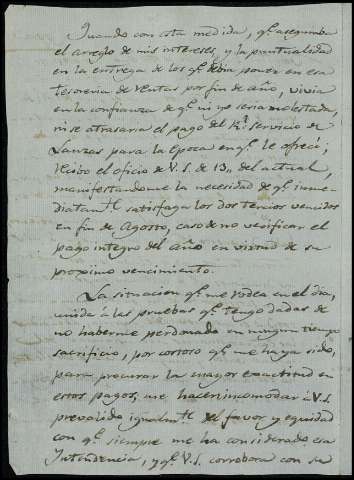 Quando con esta medida, qᵉ aseguraba
el arreglo de mis intereses, y la puntualidad
en la entrega de los qᵉ debia poner en esa
tesoreria de rentas por fin de año, vivia
en la confianza de qᵉ ni yo seria molestada,
ni se atrasaria el pago del Rˡ servicio de
Lanzas para la época en qᵉ le ofreci;
recibo el oficio de V.S. de 13,, del actual,
manifestandome la necesidad de qᵉ inme
diatamᵗᵉ satisfaga los dos tercios vencidos
en fin de Agosto, caso de no verificar el
pago integro del año en virtud de su
proximo vencimiento.
La situacion qᵉ me rodea en el dia,
unida á las pruebas qᵉ tengo dadas de
no haberme perdonado en ningun tiempo
sacrificio, por costoso qᵉ me haya sido,
para procurar la mayor exactitud en
estos pagos, me hacen incomodar á V.S.
prevalido igualmᵗᵉ del favor y equidad
con qᵉ siempre me ha considerado esa
Intendencia, y qᵉ V.S. corrobora con su